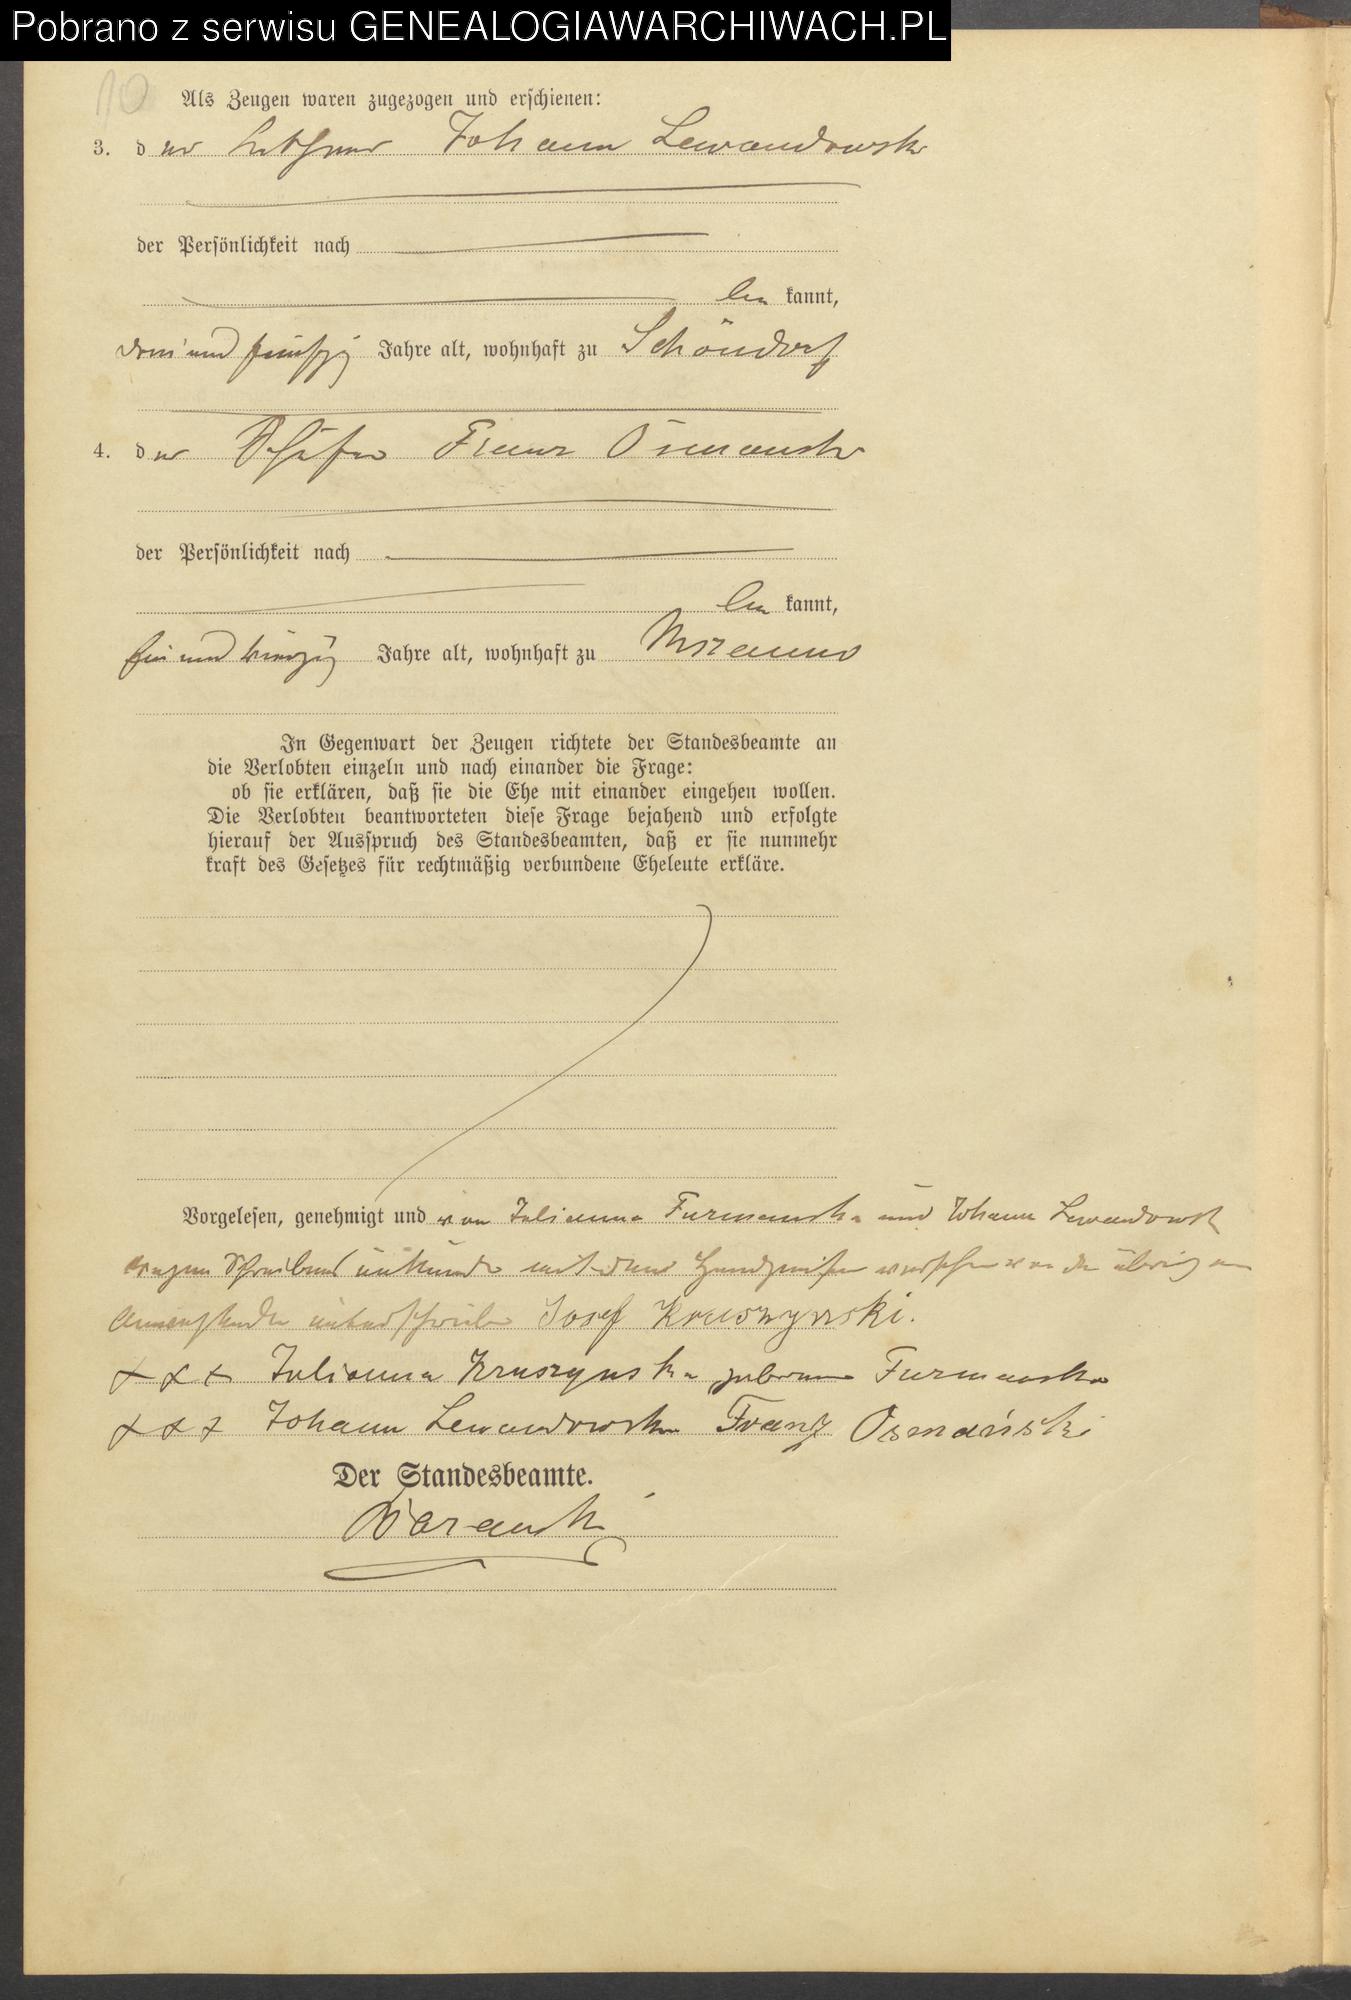 Pobrano z serwisu GENEALOGIAWARCHIWACH.PL
10
Als Zeugen waren zugezogen und erschienen:
3. der Johann Lewandowski
der Persönlichkeit nach
be kannt,
drei und fünfzig Jahre alt, wohnhaft zu Schöndorf
4. der Schäfer Franz Osmanski
der Persönlichkeit nach
be kannt,
Jahre alt, wohnhaft zu Mszanno
In Gegenwart der Zeugen richtete der Standesbeamte an
die Verlobten einzeln und nach einander die Frage:
ob sie erklären, daß sie die Ehe mit einander eingehen wollen.
Die Verlobten beantworteten diese Frage bejahend und erfolgte
hierauf der Ausspruch des Standesbeamten, daß er sie nunmehr
kraft des Gesetzes für rechtmäßig verbundene Eheleute erkläre.
Vorgelesen, genehmigt und von Julianna Furmanska und Johann Lewandowski
wegen Schreibens unkunde mit ihren Handzeichen versehen von den übrigen
unterschrieben Josef Kruszynski.
+++ Julianna Kruszynska geborene Furmanska
+++ Johann Lewandowski Franz Osmański
Der Standesbeamte.